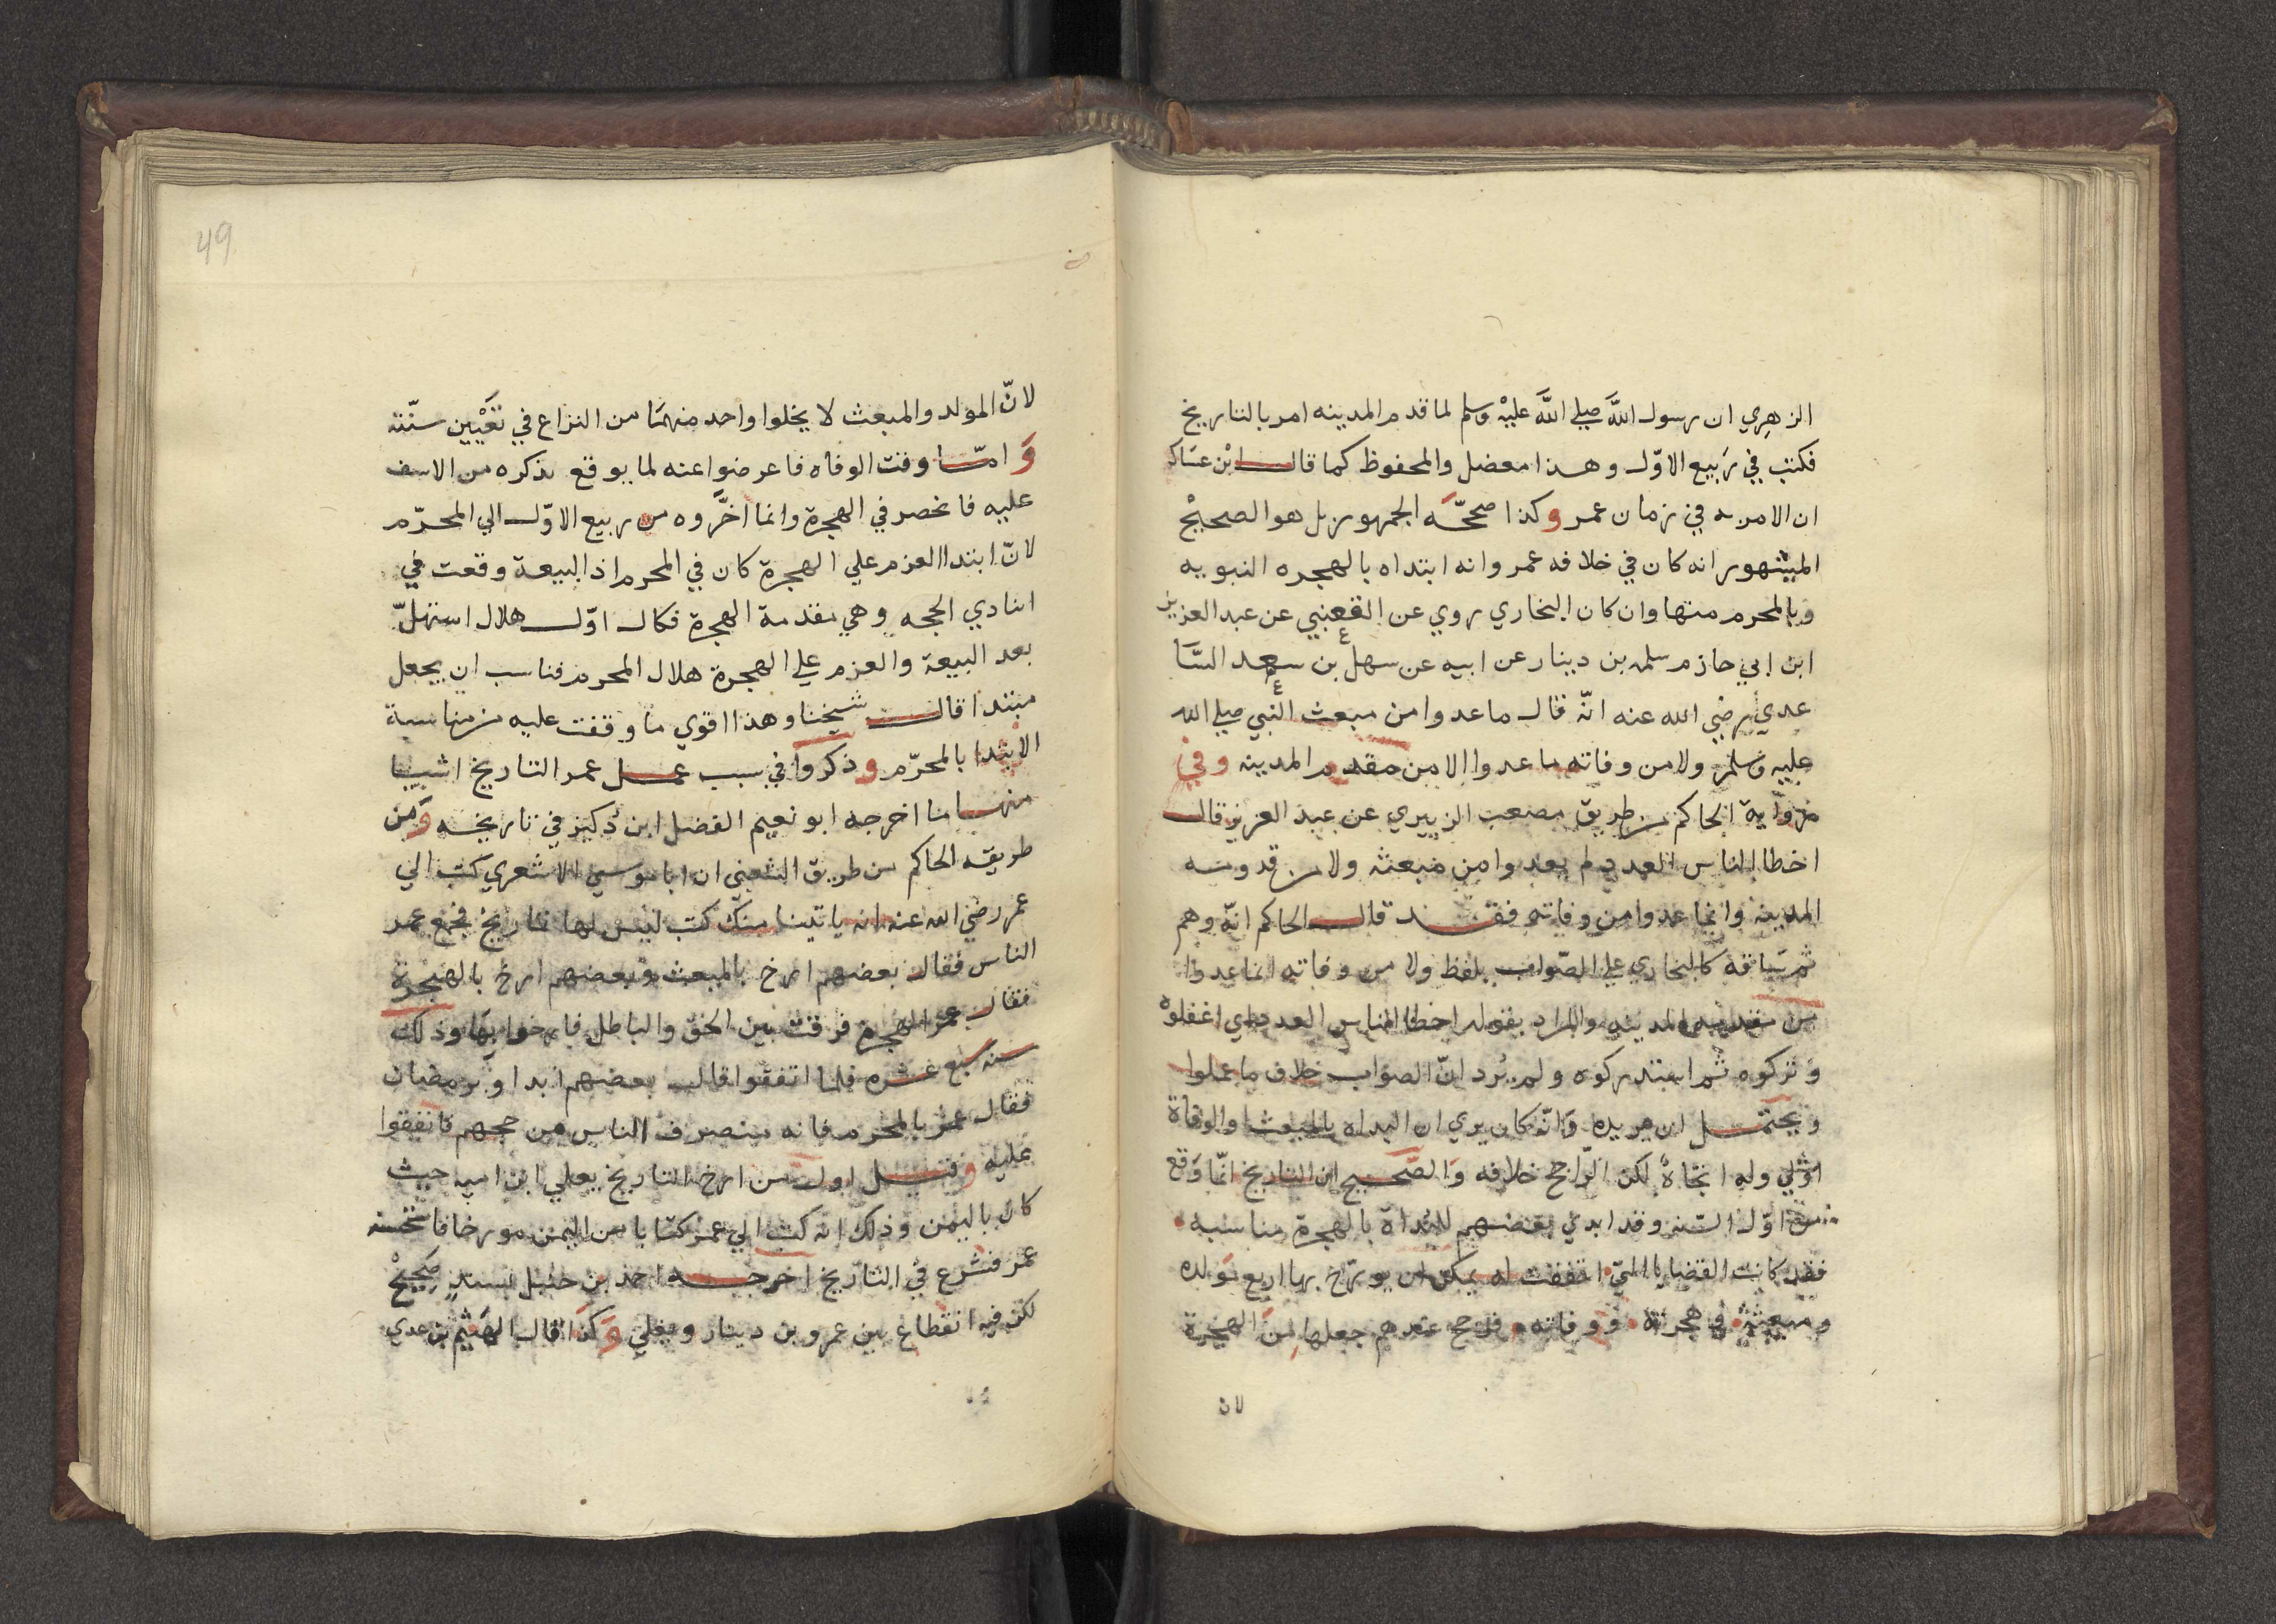 الزهري ان رسول الله صلي الله عليه وسلم لما قدم المدينه امر بالتاريخ
فكتب في ربيع الاول وهذا معضل والمحفوظ كما قال ابن عساكر
ان الامر به في زمان عمر وكذا صححه الجمهور بل هو الصحيح
المشهور انه كان في خلافه عمر وانه ابتداه بالهجره النبويه
وبالمحرم منها وان كان البخاري روي عن القعنبي عن عبد العزيز
ابن ابي حازم سلمه بن دينار عن ابيه عن سهل بن سعد السا
عدي رضي الله عنه انه قال ما عدوا من مبعث النبي صلي الله
عليه وسلم ولا من وفاته ما عدوا الا من مقدم المدينه وفي
رواية الحاكم من طريق مصعب الزبيري عن عبد العزيز قال
اخطا الناس العدد لم يعدوا من مبعثه ولا من قدومه
المدينه وانما عدوا من وفاته فقد قال الحاكم انه وهم
ثم ساقه كالبخاري علي الصواب بلفظ ولا من وفاته انما عدوا
من مقدمه المدينه والمراد بقوله اخطا الناس العدد اي اغفلوه
وتركوه ثم استدركوه ولم يرد ان الصواب خلاف ما عملوا
ويحتمل ان يريده وانه كان يري ان البداه بالمبعث والوفاة
اولي وله اتجاه لكن الراجح خلافه والصحيح ان التاريخ انما وقع
من اول السنه وقد ابدي بعضهم للبداة بالهجرة مناسبه
فقد كانت القضايا التي اتفقت له يمكن ان يورخ بها اربع مولده
ومبعثه وهجرته ووفاته فرجح عندهم جعلها من الهجرة
لان
49
لان المولد والمبعث لا يخلوا واحد منهما من النزاع في تعيين سنته
واما وقت الوفاه فاعرضوا عنه لما يوقع بذكره من الاسف
عليه فانحصر في الهجرة وانما اخروه من ربيع الاول الي المحرم
لان ابتدا العزم علي الهجرة كان في المحرم اذ البيعة وقعت في
اثنا ذي الحجه وهي مقدمة الهجرة فكان اول هلال استهل
بعد البيعة والعزم علي الهجرة هلال المحرم فناسب ان يجعل
مبتدا قال شيخنا وهذا اقوي ما وقفت عليه من مناسبة
الابتدا بالمحرم وذكروا في سبب عمل عمر التاريخ اشيا
منها ما اخرجه ابو نعيم الفضل ابن دكين في تاريخه ومن
طريقه الحاكم من طريق الشعبي ان ابا موسي الاشعري كتب الي
عمر رضي الله عنه انه ياتينا منك كتب ليس لها تاريخ فجمع عمر
الناس فقال بعضهم ارخ بالمبعث وبعضهم ارخ بالهجرة
فقال عمر الهجرة فرقت بين الحق والباطل فارخوا بها وذلك
سنه سبع عشره فلما اتفقوا قال بعضهم ابدا وبرمضان
فقال عمر بالمحرم فانه منصرف الناس من حجهم فاتفقوا
عليه وقيل اول من ارخ التاريخ يعلي ابن اميه حيث
كان باليمن وذلك انه كتب الي عمر كتابا من اليمن مورخا فاستحسنه
عمر فشرع في التاريخ اخرجه احمد بن حنبل بسند صحيح
لكن فيه انقطاع بين عمرو بن دينار ويعلي وكذا قال الهيثم بن عدي